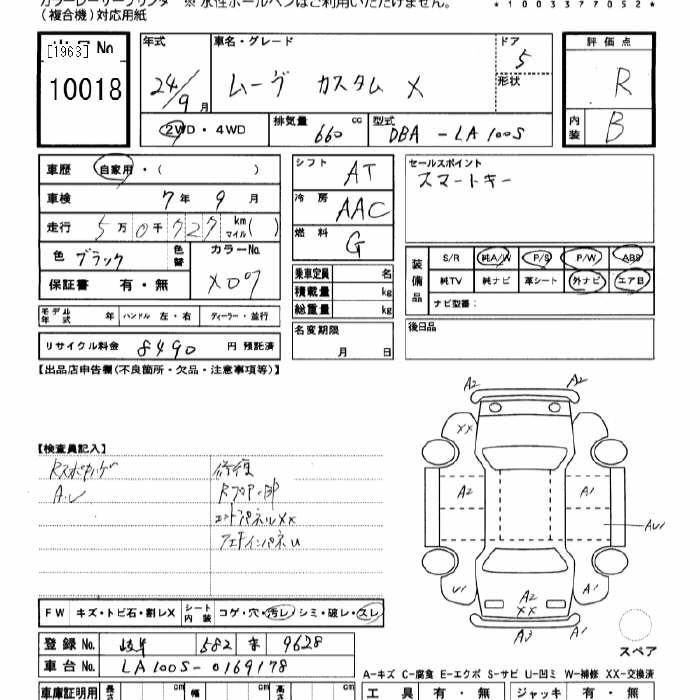 カラーレーザープリンター ※ 水性ボールペンはご利用いただけません。
(複合機)対応用紙
*1003377052*
[1963]
10018
年式 24/9月
車名・グレード ムーヴ カスタム X
ドア 5
形状
評価点 R
内装 B
2WD・4WD
排気量 660 cc
型式 DBA-LA100S
車歴 自家用・( )
車検 7年 9月
走行 5万0千727 km マイル( )
色 ブラック 色替 カラーNo. X07
保証書 有・無
モデル年式 年 ハンドル 左・右 ディーラー・並行
リサイクル料金 8490 円 預託済
シフト AT
冷房 AAC
燃料 G
乗車定員 名
積載量 kg
総重量 kg
名変期限
月 日
セールスポイント
スマートキー
装備品
S/R 純A/W P/S P/W ABS
純TV 純ナビ 革シート 外ナビ エアB
ナビ型番:
後日品
【出品店申告欄(不良箇所・欠品・注意事項等)】
【検査員記入】
A・U
修復
エンドパネルXX
A2 A2
XX
A2 A1
AU1
U1 A2 A1
XX
A3 A1
スペア
FW キズ・トビ石・割レX シート内装 コゲ・穴・汚レ・シミ・破レ・スレ
登録No. 岐阜 582 9628
車台No. LA100S-0169178
A-キズ C-腐食 E-エクボ S-サビ U-凹ミ W-補修 XX-交換済
車庫証明用 長さ cm 幅 cm 高さ cm
工具 有・無 ジャッキ 有・無